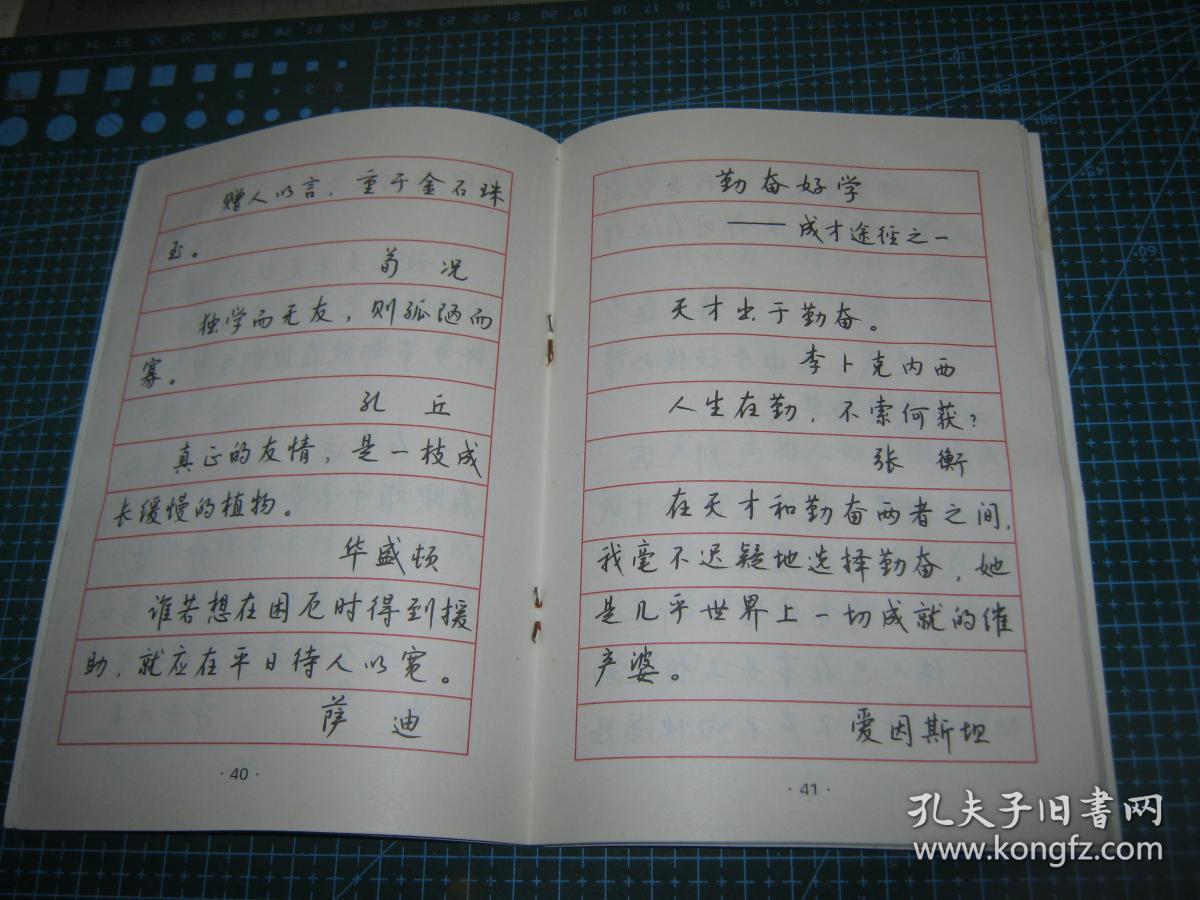 赠人以言，重于金石珠
玉。
荀况
独学而无友，则孤陋而
寡。
孔丘
真正的友情，是一枝成
长缓慢的植物。
华盛顿
谁若想在困厄时得到援
助，就应在平日待人以宽。
萨迪
·40·
勤奋好学
——成才途径之一
天才出于勤奋。
李卜克内西
人生在勤，不索何获？
张衡
在天才和勤奋两者之间，
我毫不迟疑地选择勤奋，她
是几乎世界上一切成就的催
产婆。
爱因斯坦
·41·
孔夫子旧書网
www.kongfz.com